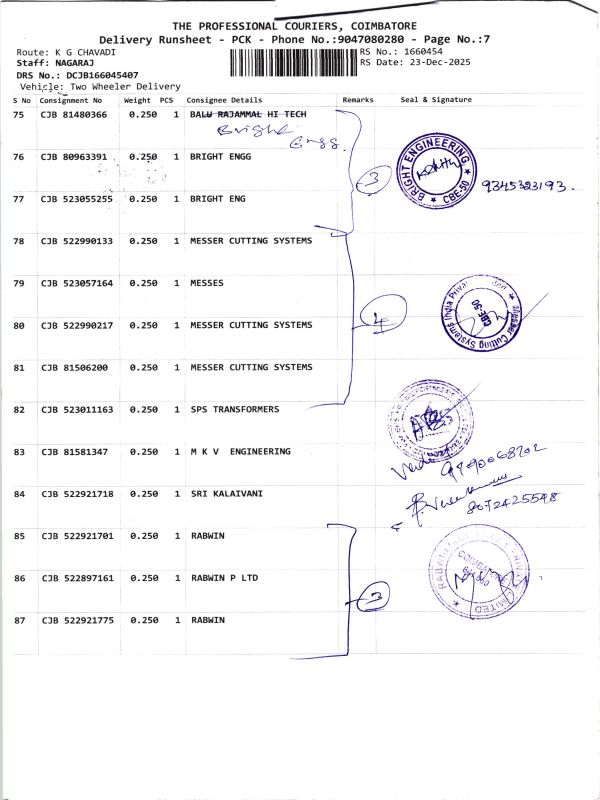 THE PROFESSIONAL COURIERS, COIMBATORE
Delivery Runsheet - PCK - Phone No.:9047080280 - Page No.:7
Route: K G CHAVADI
RS No.: 1660454
Staff: NAGARAJ
RS Date: 23-Dec-2025
DRS No.: DCJB166045407
Vehicle: Two Wheeler Delivery
S No Consignment No Weight PCS Consignee Details Remarks Seal & Signature
75 CJB 81480366 0.250 1 BALU RAJAMMAL HI TECH
Bright
Engg.
76 CJB 80963391 0.250 1 BRIGHT ENGG
3
BRIGHT ENGINEERING
CBE-50
9345323193.
77 CJB 523055255 0.250 1 BRIGHT ENG
78 CJB 522990133 0.250 1 MESSER CUTTING SYSTEMS
79 CJB 523057164 0.250 1 MESSES
4
Messer Cutting Systems India Priva
CBE-50
80 CJB 522990217 0.250 1 MESSER CUTTING SYSTEMS
81 CJB 81506200 0.250 1 MESSER CUTTING SYSTEMS
82 CJB 523011163 0.250 1 SPS TRANSFORMERS
83 CJB 81581347 0.250 1 M K V ENGINEERING
9790068702
84 CJB 522921718 0.250 1 SRI KALAIVANI
8072425548
85 CJB 522921701 0.250 1 RABWIN
86 CJB 522897161 0.250 1 RABWIN P LTD
3
RABWIN
COIMBATORE
LIMITED
87 CJB 522921775 0.250 1 RABWIN